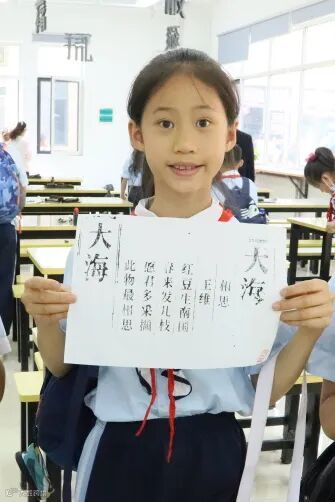 大海
相思
王维
红豆生南国
春来发几枝
愿君多采撷
此物最相思
大海